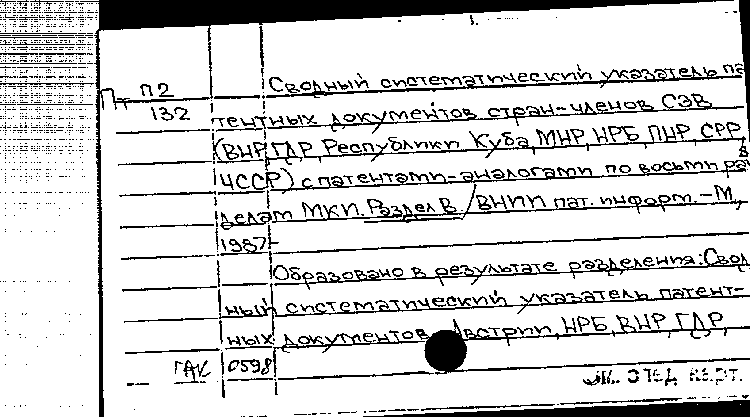 Пт П2
132
Сводный систематический указатель па
тентных документов стран-членов СЭВ
(ВНР, ГДР, Республики Куба, МНР, НРБ, ПНР, СРР,
ЧССР) с патентами-аналогами по восьми раз
делам МКИ. Раздел В / ВНИИ пат. информ. – М.,
1987-
Образовано в результате разделения: Свод
ный систематический указатель патент-
ных документов Австрии, НРБ, ВНР, ГДР,
ГАК 0598